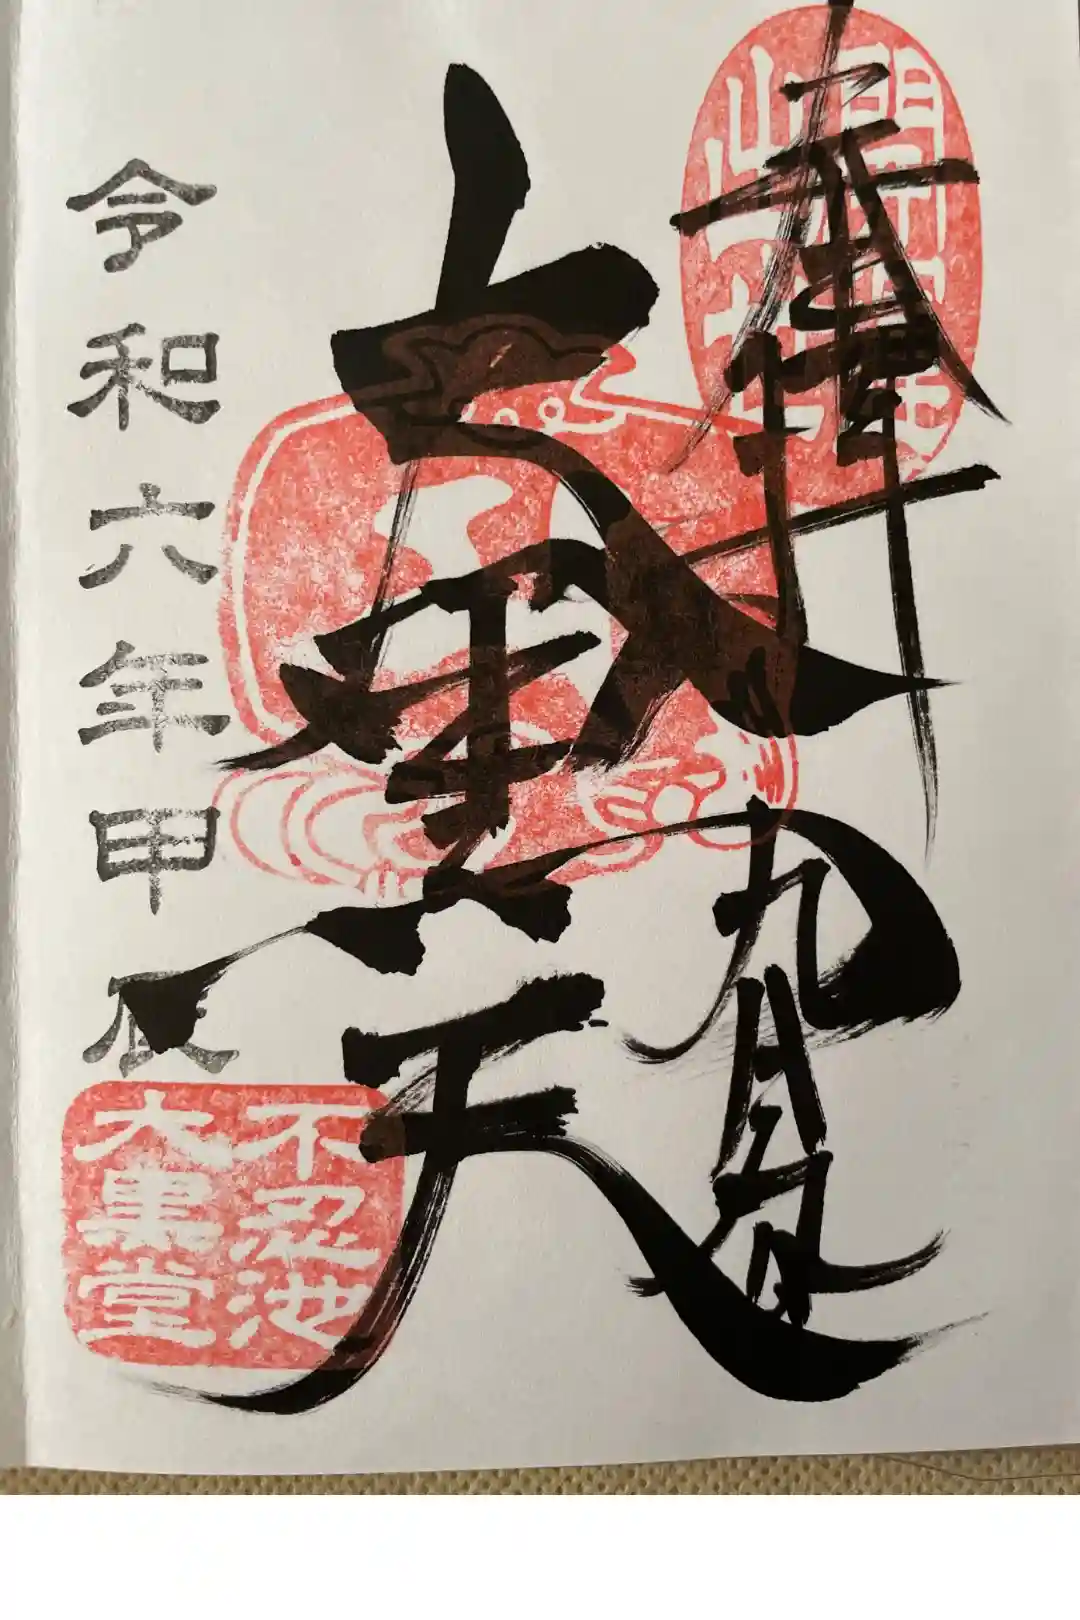 奉拝
九月　日
大黒天
令和六年甲辰
不忍池
大黒堂